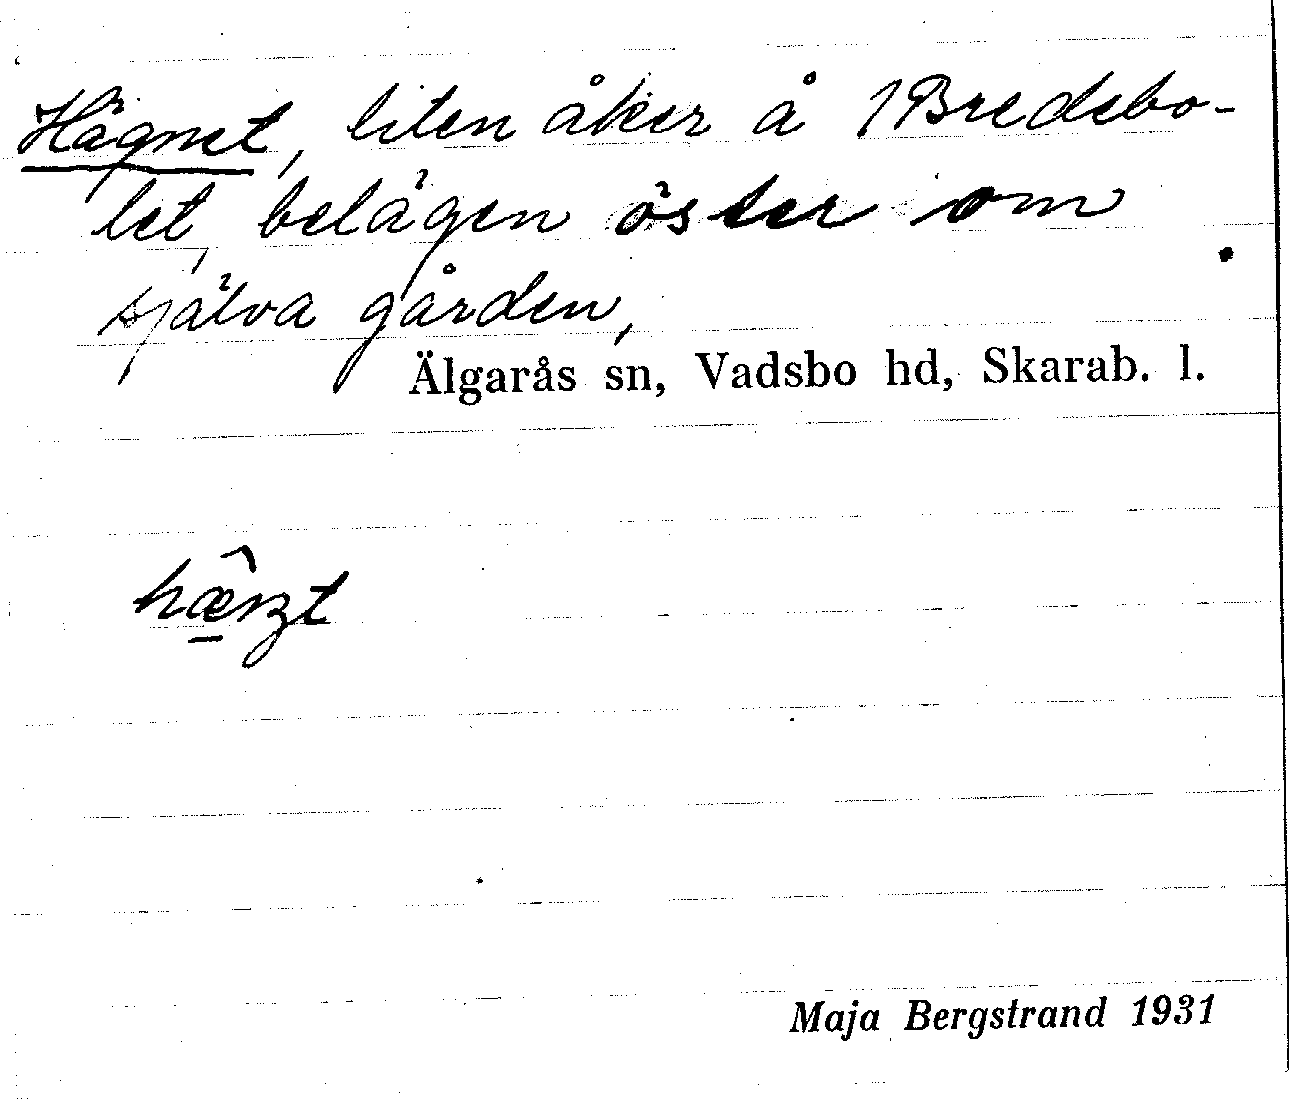 Hägnet, liten åker å Bredebo-
let, belägen öster om
själva gården,
Älgarås sn, Vadsbo hd, Skarab. l.
Maja Bergstrand 1931